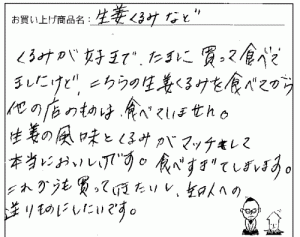 お買い上げ商品名：生姜くるみなど
くるみが好きで、たまに買って食べて
ましたけど、こちらの生姜くるみを食べてから
他の店のものは、食べていません。
生姜の風味とくるみがマッチをして
本当においしいです。食べすぎてしまします。
これからも買って頂きたいし、知人への
送りものにしたいです。